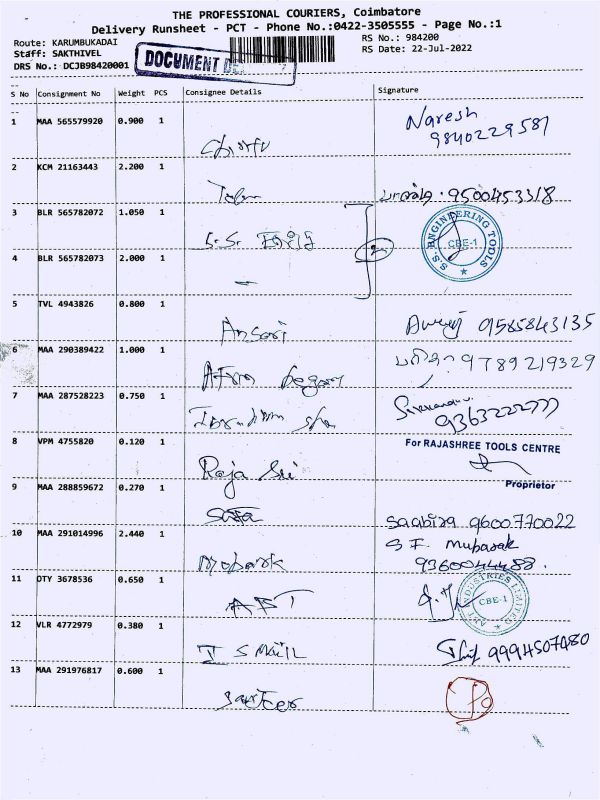 THE PROFESSIONAL COURIERS, Coimbatore
Delivery Runsheet - PCT - Phone No.:0422-3505555 - Page No.:1
Route: KARUMBUKADAI RS No.: 984200
Staff: SAKTHIVEL RS Date: 22-Jul-2022
DRS No.: DCJB98420001 DOCUMENT
S No Consignment No Weight PCS Consignee Details Signature
1 MAA 565579920 0.900 1 Naresh
9840229587
2 KCM 21163443 2.200 1 9500453318
3 BLR 565782072 1.050 1 S.S. S.S. ENGINEERING TOOLS CBE-1
4 BLR 565782073 2.000 1
5 TVL 4943826 0.800 1 Ansari 9585843135
6 MAA 290389422 1.000 1 9789219329
7 MAA 287528223 0.750 1
8 VPM 4755820 0.120 1 Raja Sri For RAJASHREE TOOLS CENTRE
Proprietor
9 MAA 288859672 0.270 1 Saabira 9600770022
10 MAA 291014996 2.440 1 Mobark S.F. Mubarak
9360044488.
11 OTY 3678536 0.650 1 INDUSTRIES LIMITED CBE-1
12 VLR 4772979 0.380 1 9994507480
13 MAA 291976817 0.600 1